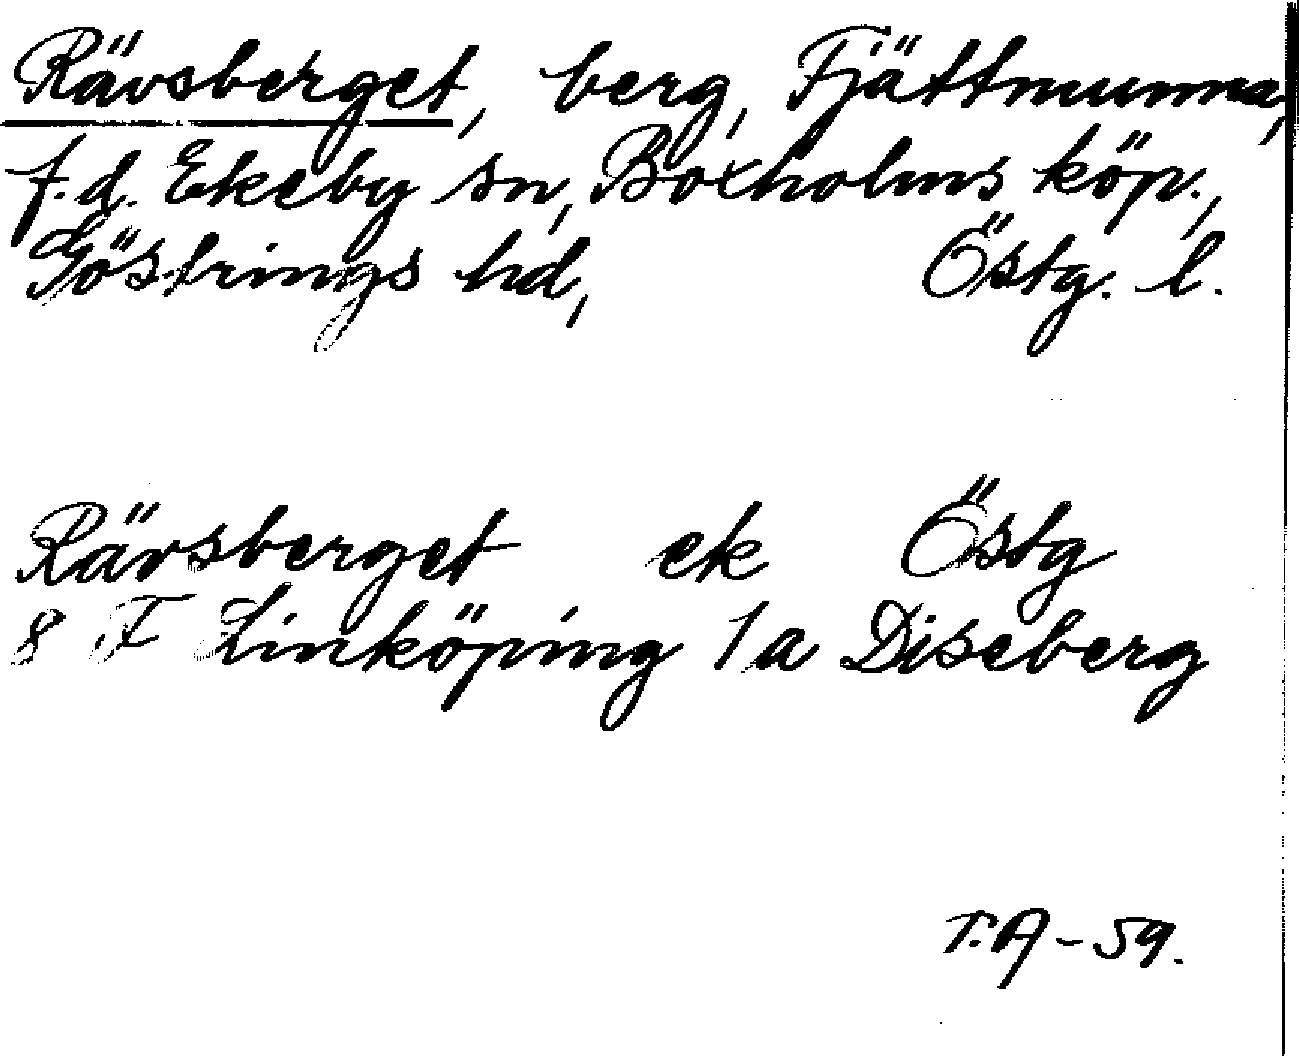 Rävsberget, berg, Fjättmunna,
f.d. Ekeby sn, Boxholms köp.,
Göstrings hd, Östg. l.
Rävsberget ek Östg
8 F Linköping 1a Diseberg
T.A-59.